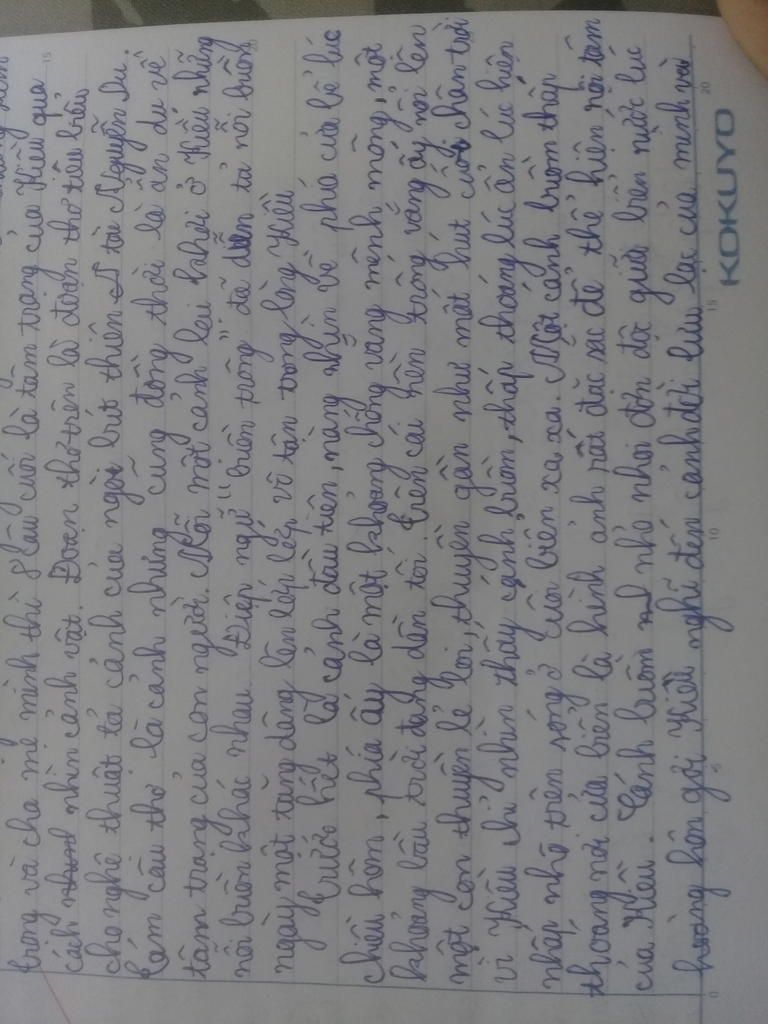 trọng và cha mẹ mình thì 8 câu cuối là tâm trạng của Kiều qua
cách nhìn cảnh vật. Đoạn thơ trên là đoạn thơ tiêu biểu
cho nghệ thuật tả cảnh của ngòi bút thiên tài Nguyễn Du.
Tám câu thơ là cảnh nhưng cũng đồng thời là ẩn dụ về
tâm trạng của con người. Mỗi một cảnh lại khơi ở Kiều những
nỗi buồn khác nhau. Điệp ngữ "buồn trông" đã diễn tả nỗi buồn
ngày một tăng dâng lên lớp lớp, vô tận trong lòng Kiều
Trước hết là cảnh đầu tiên, nàng nhìn về phía cửa bể lúc
chiều hôm, phía ấy là một khoảng trống vắng mênh mông, một
khoảng bầu trời đang dần tối. Trên cái nền trống vắng ấy nổi lên
một con thuyền lẻ loi, thuyền gần như mất hút cuối chân trời
vì Kiều chỉ nhìn thấy cánh buồm, thấp thoáng lúc ẩn lúc hiện
nhấp nhô trên sóng ở cửa biển xa xa. Một cánh buồm thấp
thoáng nơi cửa biển là hình ảnh rất đặc sắc để thể hiện nội tâm
của Kiều. Cánh buồm nhỏ nhoi đơn độc giữa biển nước lúc
hoàng hôn gợi Kiều nghĩ đến cảnh đời lưu lạc của mình và
KOKUYO
0
5
10
15
20
15
20